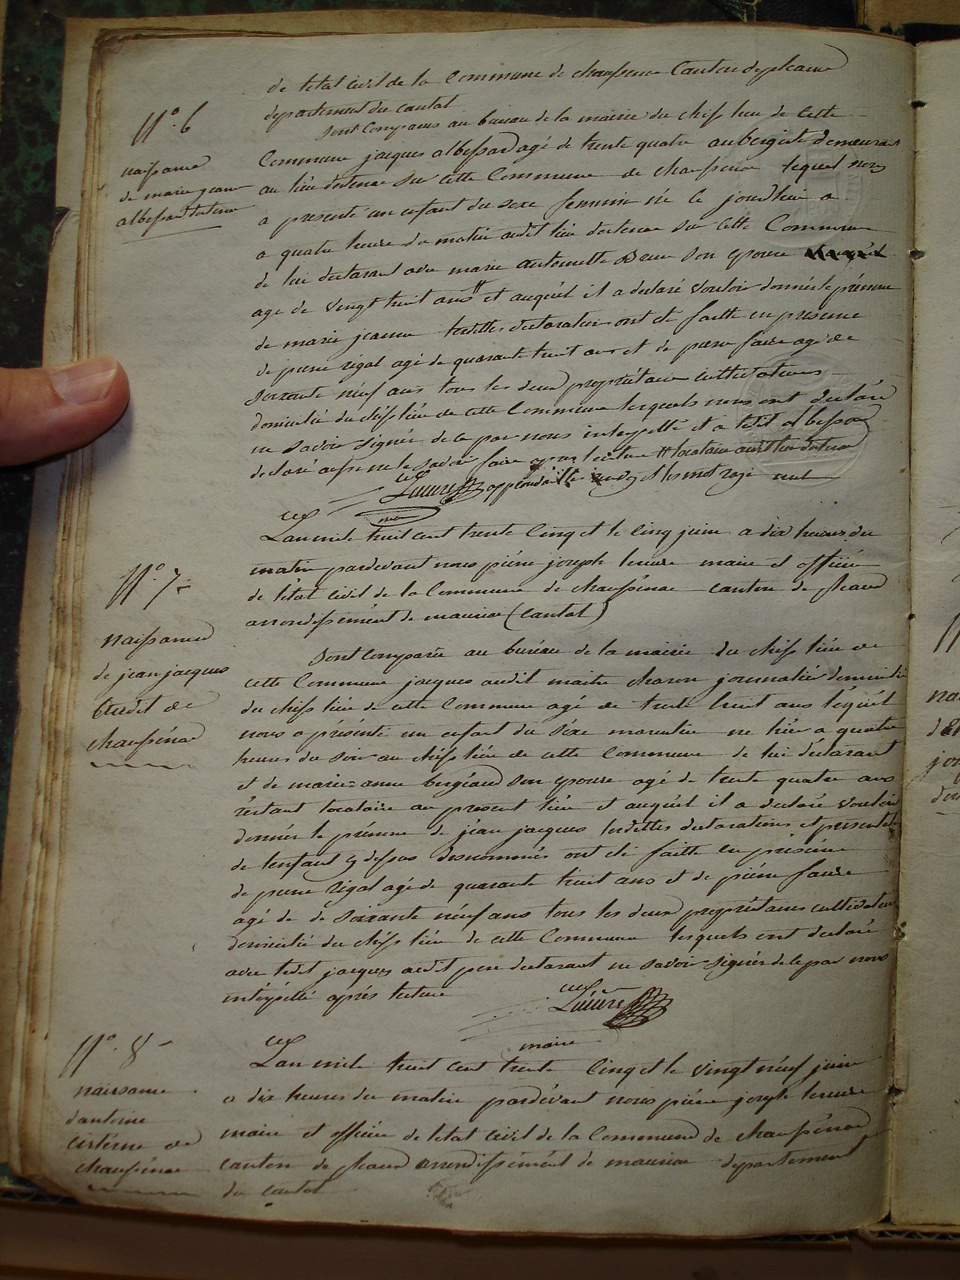 de letat civil de la Commune de chaussenac Canton de pleaux
departement du cantal
N° 6
naissance
de marie jeanne
albessard
Sont Comparus au bureau de la mairie du cheff lieu de Cette
Commune jacques albessard agé de trente quatre aubergiste demeurant
au lieu sur cette Commune de chaussenac lequel nous
a presenté un enfant du sexe feminin né le jourdhui a
a quatre heure du matin audit lieu sur cette Commune
de lui declarant avec marie antoinette Brun son epouse
age de vingt huit ans et auquel il a declaré vouloir donner le prénom
de marie jeanne lesdittes declaration ont été faitte en presence
de pierre rigal agé de quarante huit ans et de pierre faure agé de
soixante neuf ans tous les deux propriétaire cultivateurs
domicilié du cheff lieu de cette Commune lesquels nous ont declaré
ne savoir signée de ce par nous interpellé et a ledit albessard
declaré aussi ne le savoir faire apres lecture locataire audit lieu
mots rayé nul
maire
N° 7
naissance
de jean jacques
audit de
chaussenac
Lan mile huit cent trente Cinq et le Cinq juin a dix heures du
matin pardevant nous piérre joseph maire et officier
de létat civil de la Commune de chaussenac canton de pleaux
arrondissément de mauriac (cantal)
Sont Comparus au buréau de la mairie du cheff lieu de
cette Commune jacques audit maitre charon journalié domicilié
du cheff lieu de cette Commune agé de trente huit ans lequél
nous a présénté un enfant du séxe masculin né hiér a quatre
heures du soir au cheff lieu de cette Commune de lui declarant
et de marie-anne son epouse agé de trente quatre ans
réstant locataire au present lieu et auquél il a declaré vouloir
donnér le prénom de jéan jacques lesdittes declarations et presentation
de lenfant y dessus denommés ont été faitte en présénce
de pierre rigal agé de quarante huit ans et de piérre faure
agé de de soixante néuf ans tous les deux propriétaires cultivateurs
domicilié du cheff lieu de cette Commune lesquels ont declaré
avec ledit jacques audit pere declarant ne savoir signér de ce par nous
intérpéllé aprés lecture
maire
N° 8
naissance
dantoine
de
chaussénac
Lan mile huit cent trente Cinq et le vingt néuf juin
a dix heures du matin pardévant nous piérre joseph
maire et officiér de létat civil de la Commune de chaussénac
canton de pleaux arrondissément de mauriac département
du cantal